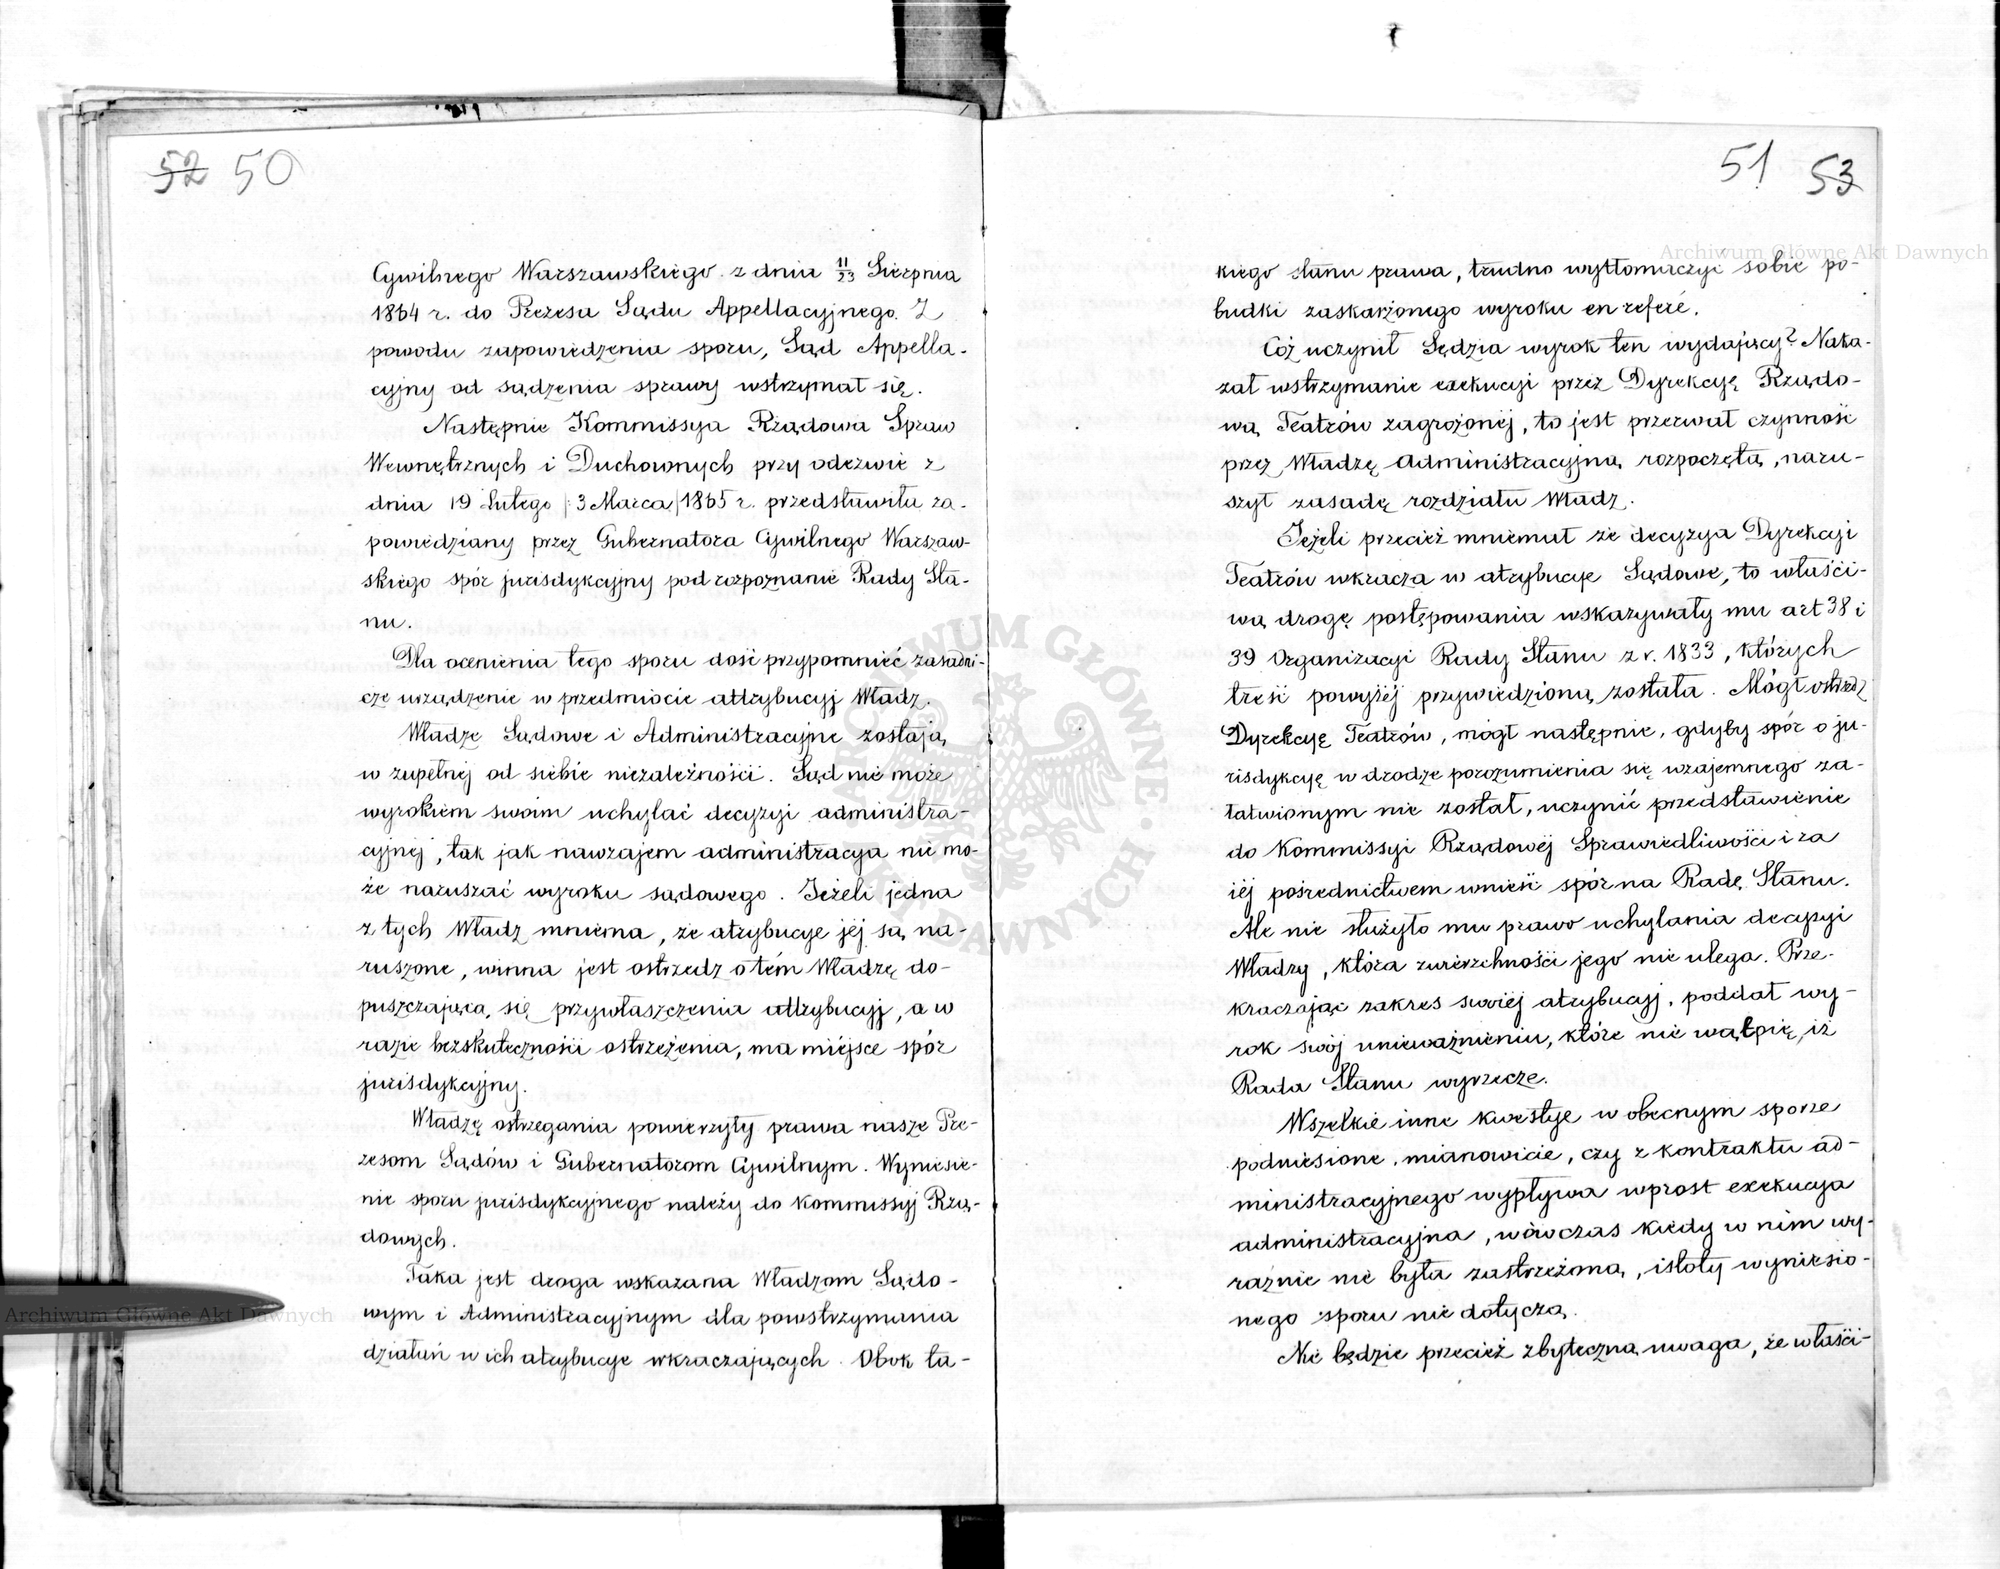 52 50
Cywilnego Warszawskiego z dnia 11/23 Sierpnia
1864 r. do Prezesa Sądu Appellacyjnego. Z
powodu zapowiedzenia sporu, Sąd Appella-
cyjny od sądzenia sprawy wstrzymał się.
Następnie Kommissya Rządowa Spraw
Wewnętrznych i Duchownych przy odezwie z
dnia 19 Lutego /3 Marca/ 1865 r. przedstawiła za-
powiedziany przez Gubernatora Cywilnego Warszaw-
skiego spór jurisdykcyjny pod rozpoznanie Rady Sta-
nu.
Dla ocenienia tego sporu dość przypomnieć zasadni-
cze urządzenie w przedmiocie attrybucyj Władz.
Władze Sądowe i Administracyjne zostają
w zupełnej od siebie niezależności. Sąd nie może
wyrokiem swoim uchylać decyzyi administra-
cyjnej, tak jak nawzajem administracya nie mo-
że naruszać wyroku sądowego. Jeżeli jedna
z tych Władz mniema, że atrybucye jéj są na-
ruszone, winna jest ostrzedz o tém Władzę do-
puszczającą się przywłaszczenia attrybucyj, a w
razie bezskuteczności ostrzeżenia, ma miejsce spór
jurisdykcyjny.
Władzę ostrzegania powierzyły prawa nasze Pre-
zesom Sądów i Gubernatorom Cywilnym. Wyniesie-
nie sporu jurisdykcyjnego należy do Kommissyj Rzą-
dowych.
Taka jest droga wskazana Władzom Sądo-
wym i Administracyjnym dla powstrzymania
działań w ich atrybucye wkraczających. Obok ta-
51 53
kiego stanu prawa, trudno wytłomaczyć sobie po-
budki zaskarżonego wyroku en referé.
Cóż uczynił Sędzia wyrok ten wydający? Naka-
zał wstrzymanie exekucyi przez Dyrekcyę Rządo-
wą Teatrów zagrożonéj, to jest przerwał czynność
przez Władzę Administracyjną rozpoczętą, naru-
szył zasadę rozdziału Władz.
Jeżeli przecież mniemał że decyzya Dyrekcyi
Teatrów wkracza w atrybucye Sądowe, to właści-
wą drogę postępowania wskazywały mu art 38 i
39 Organizacyi Rady Stanu z r. 1833, których
treść powyżéj przywiedzioną została. Mógł ostrzedz
Dyrekcyę Teatrów, mógł następnie, gdyby spór o ju-
risdykcyę w drodze porozumienia się wzajemnego za-
łatwionym nie został, uczynić przedstawienie
do Kommissyi Rządowéj Sprawiedliwości i za
iéj pośrednictwem wnieść spór na Radę Stanu.
Ale nie służyło mu prawo uchylania decyzyi
Władzy, która zwierzchności jego nie ulega. Prze-
kraczając zakres swoiéj atrybucyj, poddał wy-
rok swój unieważnieniu, które nie wątpię, iż
Rada Stanu wyrzecze.
Wszelkie inne kwestye w obecnym sporze
podniesione, mianowicie, czy z kontraktu ad-
ministracyjnego wypływa wprost exekucya
administracyjna, wówczas kiedy w nim wy-
raźnie nie była zastrzeżoną, istoty wyniesio-
nego sporu nie dotyczą.
Nie będzie przecież zbyteczną uwaga, że właści-
Archiwum Główne Akt Dawnych
Archiwum Główne Akt Dawnych
ARCHIWUM GŁÓWNE AKT DAWNYCH